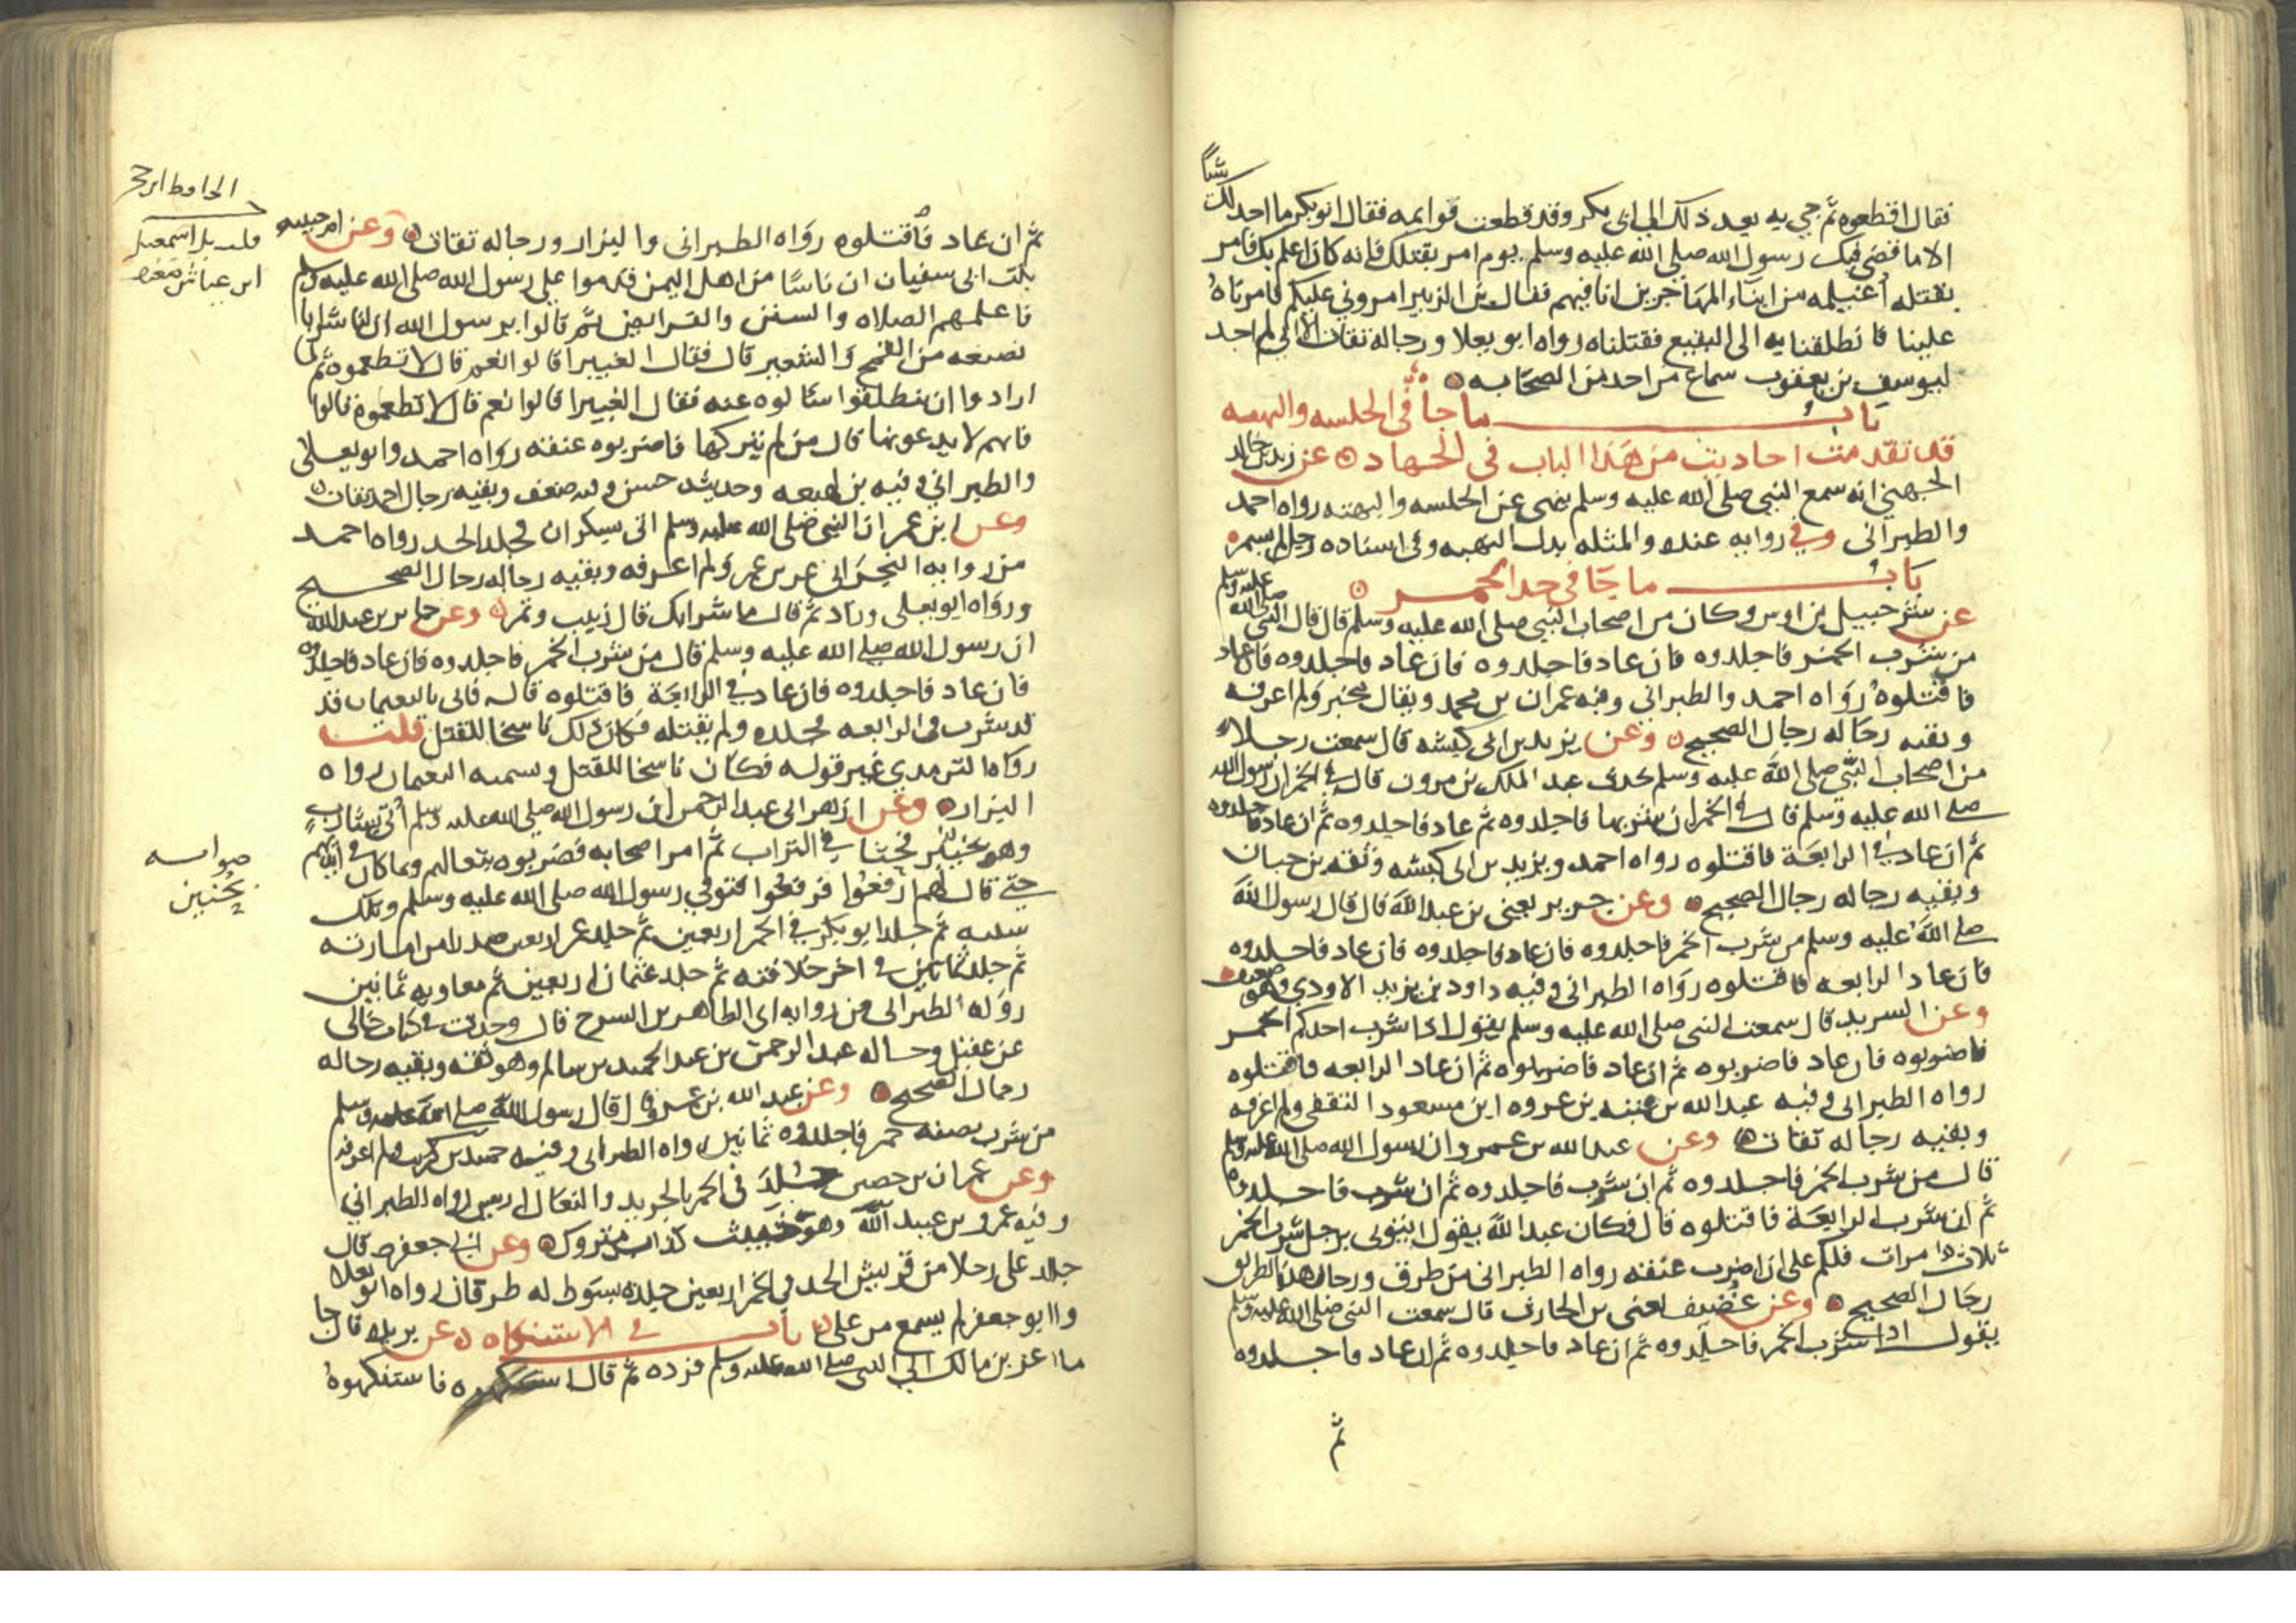 شيأ
فقال اقطعوه ثم جي به بعد ذلك الى ابى بكر وقد قطعت قوايمه فقال ابو بكر ما اجد لك
الا ما قضى فيك رسول الله صلى الله عليه وسلم يوم امر بقتلك فانه كان اعلم بك فامر
بقتله اغيلمه من ابناء المهاجرين انا فيهم فقال بن الزبير امروني عليكم فامرناه
علينا فانطلقنا به الى البقيع فقتلناه رواه ابو يعلا ورجاله ثقات الا اني لم اجد
ليوسف بن يعقوب سماع من احد من الصحابه
باب ما جا فى الخلسه والنهبه
قد تقدمت احاديث من هذا الباب فى الجهاد عن زيد بن خالد
الجهني انه سمع النبي صلى الله عليه وسلم نهى عن الخلسه والنهبه رواه احمد
والطبرانى وفي روايه عنده والمثله بدل النهبه وفى اسناده رجل لم يسم
باب ما جا في حد الخمر
عن شرحبيل بن اوس وكان من اصحاب النبي صلى الله عليه وسلم قال قال النبي صلى الله عليه وسلم
من شرب الخمر فاجلدوه فان عاد فاجلدوه فان عاد فاجلدوه فان عاد
فاقتلوه رواه احمد والطبراني وفيه عمران بن محمد ويقال مخبر ولم اعرفه
وبقيه رجاله رجال الصحيح وعن يزيد بن ابى كبشه قال سمعت رجلا
من اصحاب النبي صلى الله عليه وسلم يحدث عبد الملك بن مرون قال في الخمر ان رسول الله
صلى الله عليه وسلم قال في الخمر ان شربها فاجلدوه ثم عاد فاجلدوه ثم ان عاد فاجلدوه
ثم ان عاد في الرابعة فاقتلوه رواه احمد ويزيد بن ابى كبشه وثقه بن حبان
وبقيه رجاله رجال الصحيح وعن جرير يعنى بن عبد الله قال قال رسول الله
صلى الله عليه وسلم من شرب الخمر فاجلدوه فان عاد فاجلدوه فان عاد فاجلدوه
فان عاد الرابعه فاقتلوه رواه الطبرانى وفيه داود بن يزيد الاودي وهو ضعيف
وعن الشريد قال سمعت النبى صلى الله عليه وسلم يقول اذا شرب احدكم الخمر
فاضربوه فان عاد فاضربوه ثم ان عاد فاضربوه ثم ان عاد الرابعه فاقتلوه
رواه الطبرانى وفيه عبد الله بن عتبه بن عروه ابن مسعود الثقفى ولم اعرفه
وبقيه رجاله ثقات وعن عبد الله بن عمرو ان رسول الله صلى الله عليه وسلم
قال من شرب الخمر فاجلدوه ثم ان شرب فاجلدوه ثم ان شرب فاجلدوه
ثم ان شرب الرابعة فاقتلوه قال فكان عبد الله يقول ايتونى برجل شرب الخمر
ثلاث مرات فلكم على ان اضرب عنقه رواه الطبرانى من طرق ورجال هذا الطريق
رجال الصحيح وعن غضيف يعنى بن الحارث قال سمعت النبى صلى الله عليه وسلم
يقول اذا شرب الخمر فاجلدوه ثم ان عاد فاجلدوه ثم ان عاد فاجلدوه
ثم
ثم ان عاد فاقتلوه رواه الطبرانى والبزار ورجاله ثقات وعن ام حبيبه
بنت ابى سفيان ان ناسا من اهل اليمن قدموا على رسول الله صلى الله عليه وسلم
فاعلمهم الصلاه والسنن والفرائض ثم قالوا يرسول الله ان لنا شرابا
نصنعه من القمح والشعير قال فقال الغبيرا قالوا نعم قال لا تطعموه ثم لما
ارادوا ان ينطلقوا سألوه عنه فقال الغبيرا قالوا نعم قال لا تطعموه قالوا
فانهم لا يدعونها قال من لم يتركها فاضربوه عنقه رواه احمد وابو يعلى
والطبراني وفيه بن لهيعه وحديثه حسن وفيه ضعف وبقيه رجال احمد ثقات
وعن ابن عمر ان النبي صلى الله عليه وسلم اتى سكران فجلد الحد رواه احمد
من روايه النجرانى عن بن عمر ولم اعرفه وبقيه رجاله رجال الصحيح
ورواه ابو يعلى وزاد ثم قال ما شرابك قال زبيب وتمر وعن جابر بن عبد الله
ان رسول الله صلى الله عليه وسلم قال من شرب الخمر فاجلدوه فان عاد فاجلدوه
فان عاد فاجلدوه فان عاد في الرابعة فاقتلوه قال فاتى بالنعيمان قد
قد شرب فى الرابعه فجلده ولم يقتله فكان ذلك ناسخا للقتل قلت
رواه الترمدي غير قوله فكان ناسخا للقتل وسميه النعيمان رواه
البزار وعن ازهر ابى عبد الرحمن ان رسول الله صلى الله عليه وسلم اتى بشارب
وهو بخيبر فحثا في التراب ثم امر اصحابه فضربوه بنعالهم وبما كان فى ايديهم
حتى قال لهم ارفعوا فرفعوا فتوفي رسول الله صلى الله عليه وسلم وتلك
سنته ثم جلد ابو بكر في الخمر اربعين ثم جلد عمر اربعين صدرا من امارته
ثم جلد ثمانين فى اخر خلافته ثم جلد عثمان اربعين ثم معاويه ثمانين
رواه الطبرانى من روايه ابى الطاهر بن السرح قال وجدت فى كتاب خالى
عن عقيل وخاله عبد الرحمن بن عبد الحميد بن سالم وهو ثقه وبقيه رجاله
رجال الصحيح وعن عبد الله بن عمرو قال قال رسول الله صلى الله عليه وسلم
من شرب بصقه خمر فاجلدوه ثمانين رواه الطبرانى وفيه حميد بن كريب ولم اعرفه
وعن عمران بن حصين جلد فى الخمر بالجريد والنعال اربعين رواه الطبراني
وفيه عمرو بن عبيد الله وهو خبيث كذاب متروك وعن ابى جعفر قال
جلد على رجلا من قريش الحد في الخمر اربعين جلده بسوط له طرفان رواه ابو يعلا
وا ابو جعفر لم يسمع من على باب فى الاستنكاه عن بريده قال جا
ماعز بن مالك الى النبى صلى الله عليه وسلم فرده ثم قال استنكهوه فاستنكهوه
الحافظ ابن حجر
قلت بل اسمعيل
ابن عياش ضعفه
صوابه
بحنين